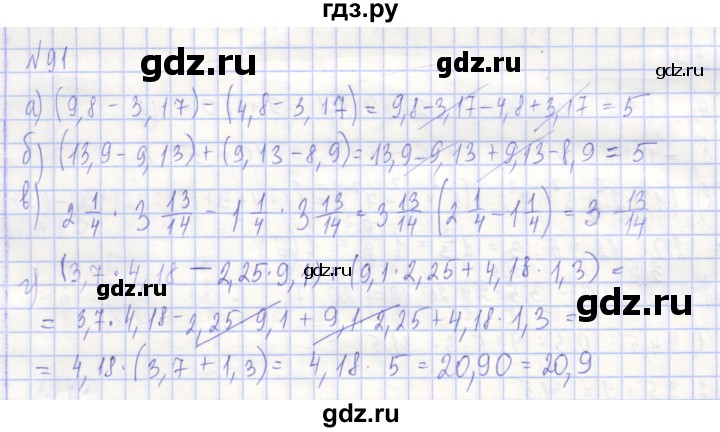 гдз.ру
№91
gdz.ru gdz.ru gdz.ru
а) (9,8 - 3,17) - (4,8 - 3,17) = 9,8 - 3,17 - 4,8 + 3,17 = 5
б) (13,9 - 9,13) + (9,13 - 8,9) = 13,9 - 9,13 + 9,13 - 8,9 = 5
в) 2 1/4 · 3 13/14 - 1 1/4 · 3 13/14 = 3 13/14 (2 1/4 - 1 1/4) = 3 13/14
г) (3,7 · 4,18 - 2,25 · 9,1) + (9,1 · 2,25 + 4,18 · 1,3) =
gdz.ru gdz.ru gdz.ru
= 3,7 · 4,18 - 2,25 · 9,1 + 9,1 · 2,25 + 4,18 · 1,3 =
= 4,18 · (3,7 + 1,3) = 4,18 · 5 = 20,90 = 20,9
gdz.ru